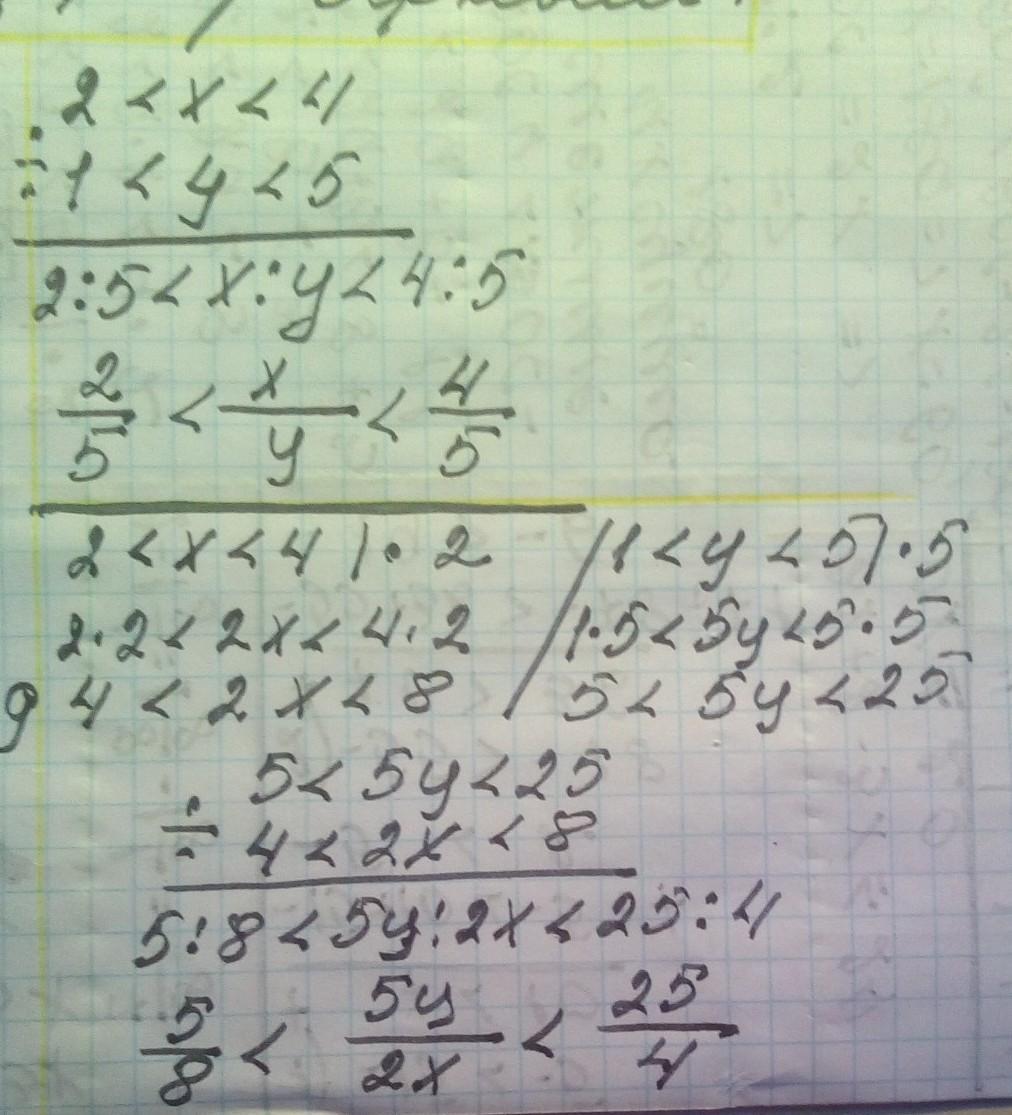 2 < x < 4
÷ 1 < y < 5
2:5 < x:y < 4:5
2/5 < x/y < 4/5
2 < x < 4 | · 2 / 1 < y < 5 | · 5
2·2 < 2x < 4·2 / 1·5 < 5y < 5·5
4 < 2x < 8 / 5 < 5y < 25
5 < 5y < 25
÷ 4 < 2x < 8
5:8 < 5y:2x < 25:4
5/8 < 5y/2x < 25/4